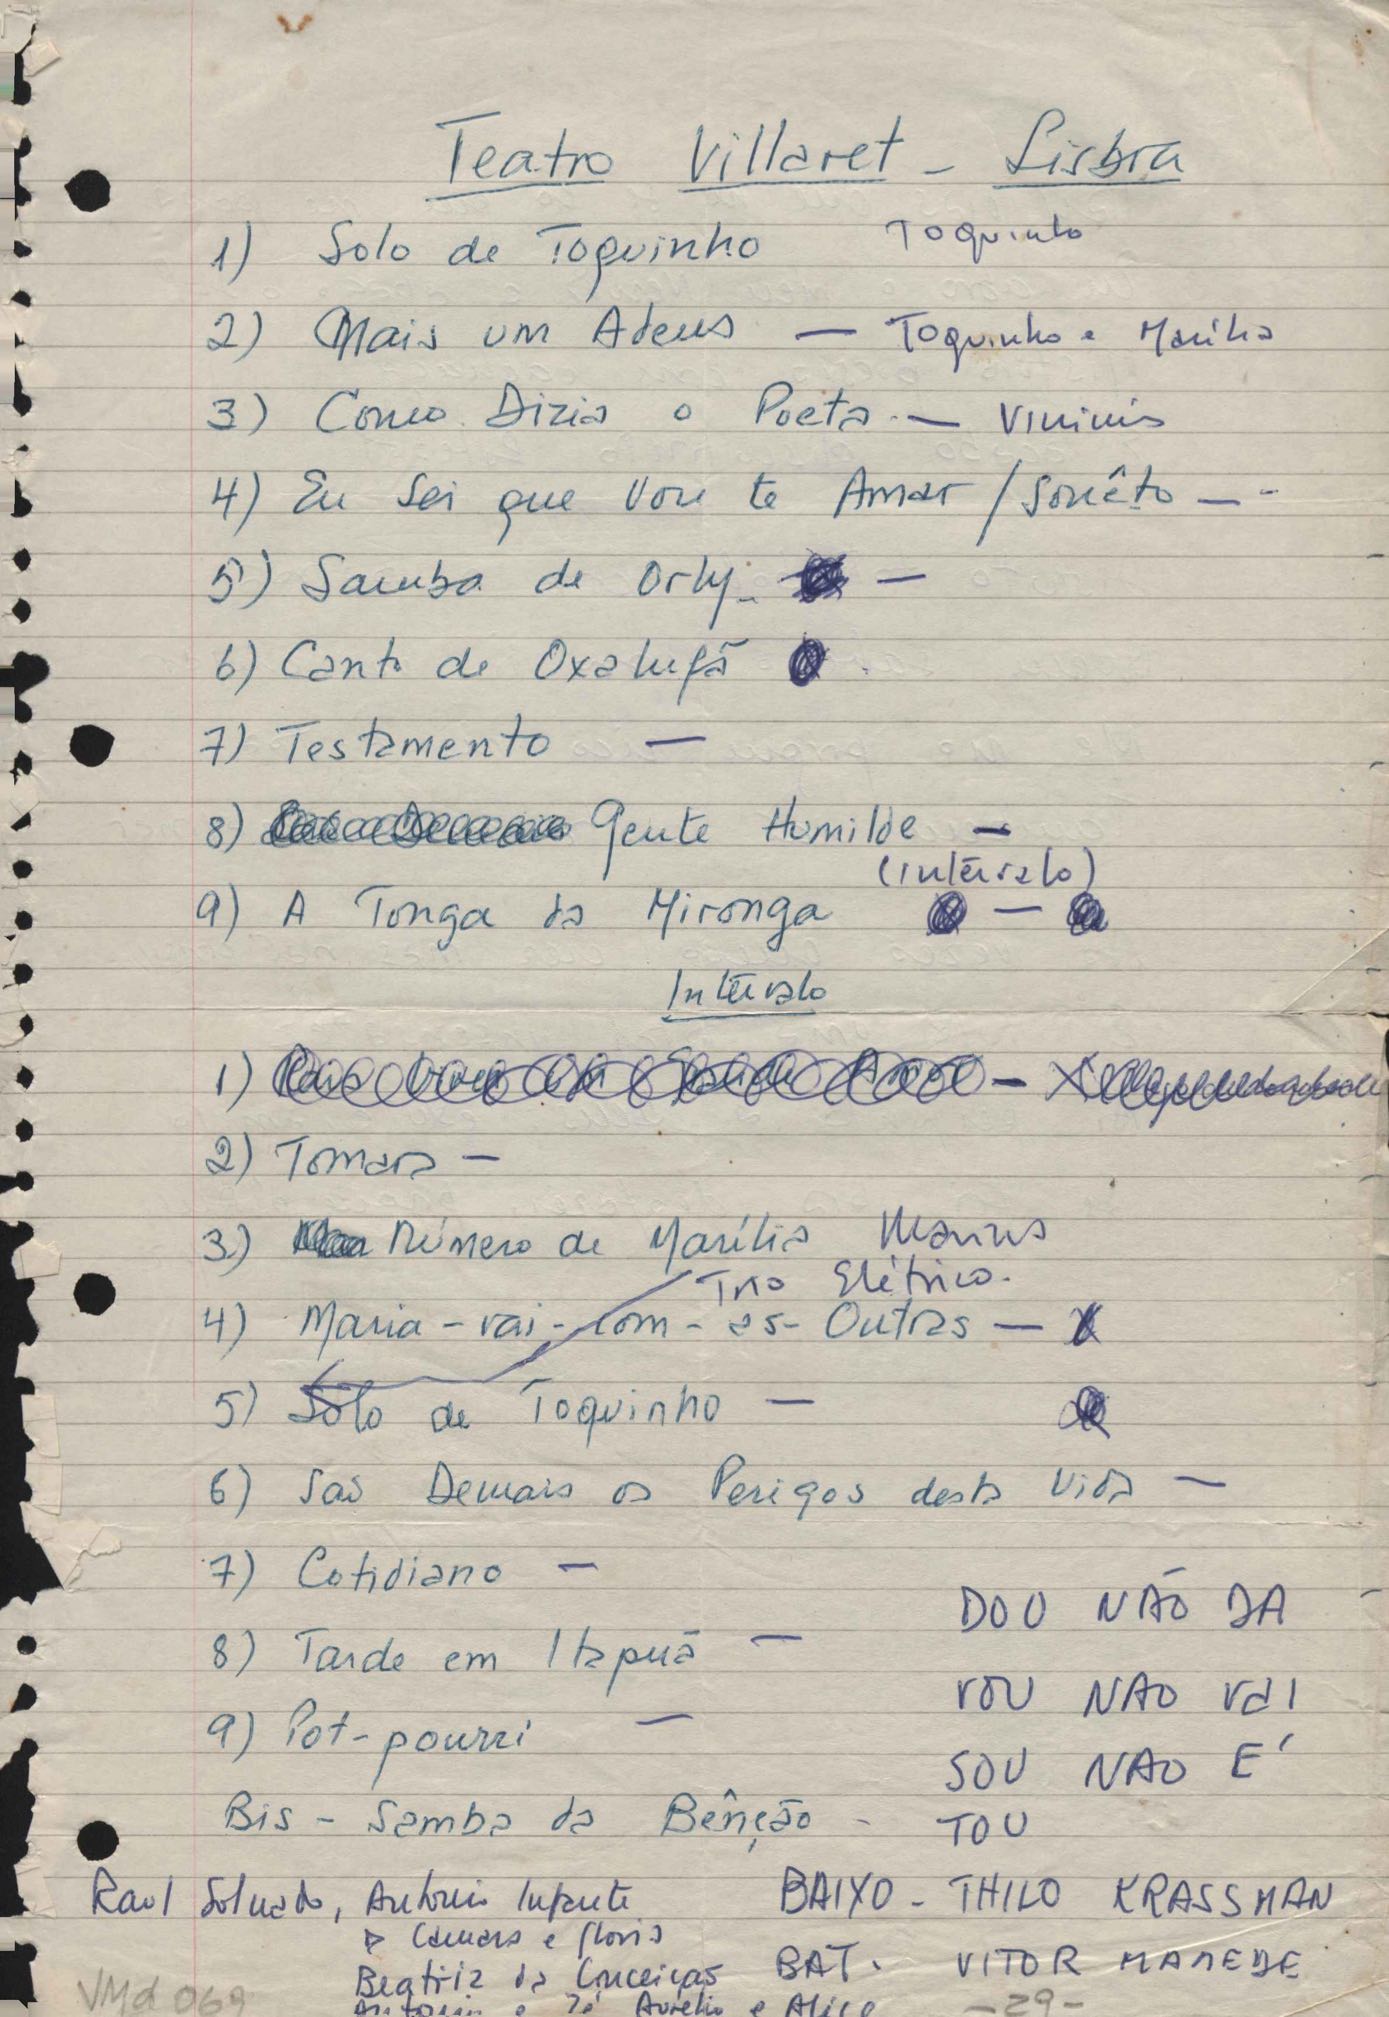 Teatro Villaret - Lisboa
1) Solo de Toquinho Toquinho
2) Mais um Adeus — Toquinho e Marília
3) Como Dizia o Poeta — Vinicius
4) Eu Sei que Vou te Amar / Sonêto —
5) Samba de Orly —
6) Canto de Oxalufã
7) Testamento —
8) Gente Humilde —
(intervalo)
9) A Tonga da Mironga —
Intervalo
1) —
2) Tomara —
3) Número de Marília
Trio Elétrico.
4) Maria-vai-com-as-Outras —
5) Solo de Toquinho —
6) São Demais os Perigos desta Vida —
7) Cotidiano —
DOU NÃO DA
8) Tarde em Itapuã —
VOU NAO VAI
9) Pot-pourri —
SOU NAO É
Bis - Samba da Bênção -
TOU
Raul Solnado, Antonio Infante
BAIXO - THILO KRASSMAN
Camara e Floris
Beatriz da Conceição
BAT. VITOR MAMEDE
Antonio e Zé Aurélio e Alice
VMd 069
-29-